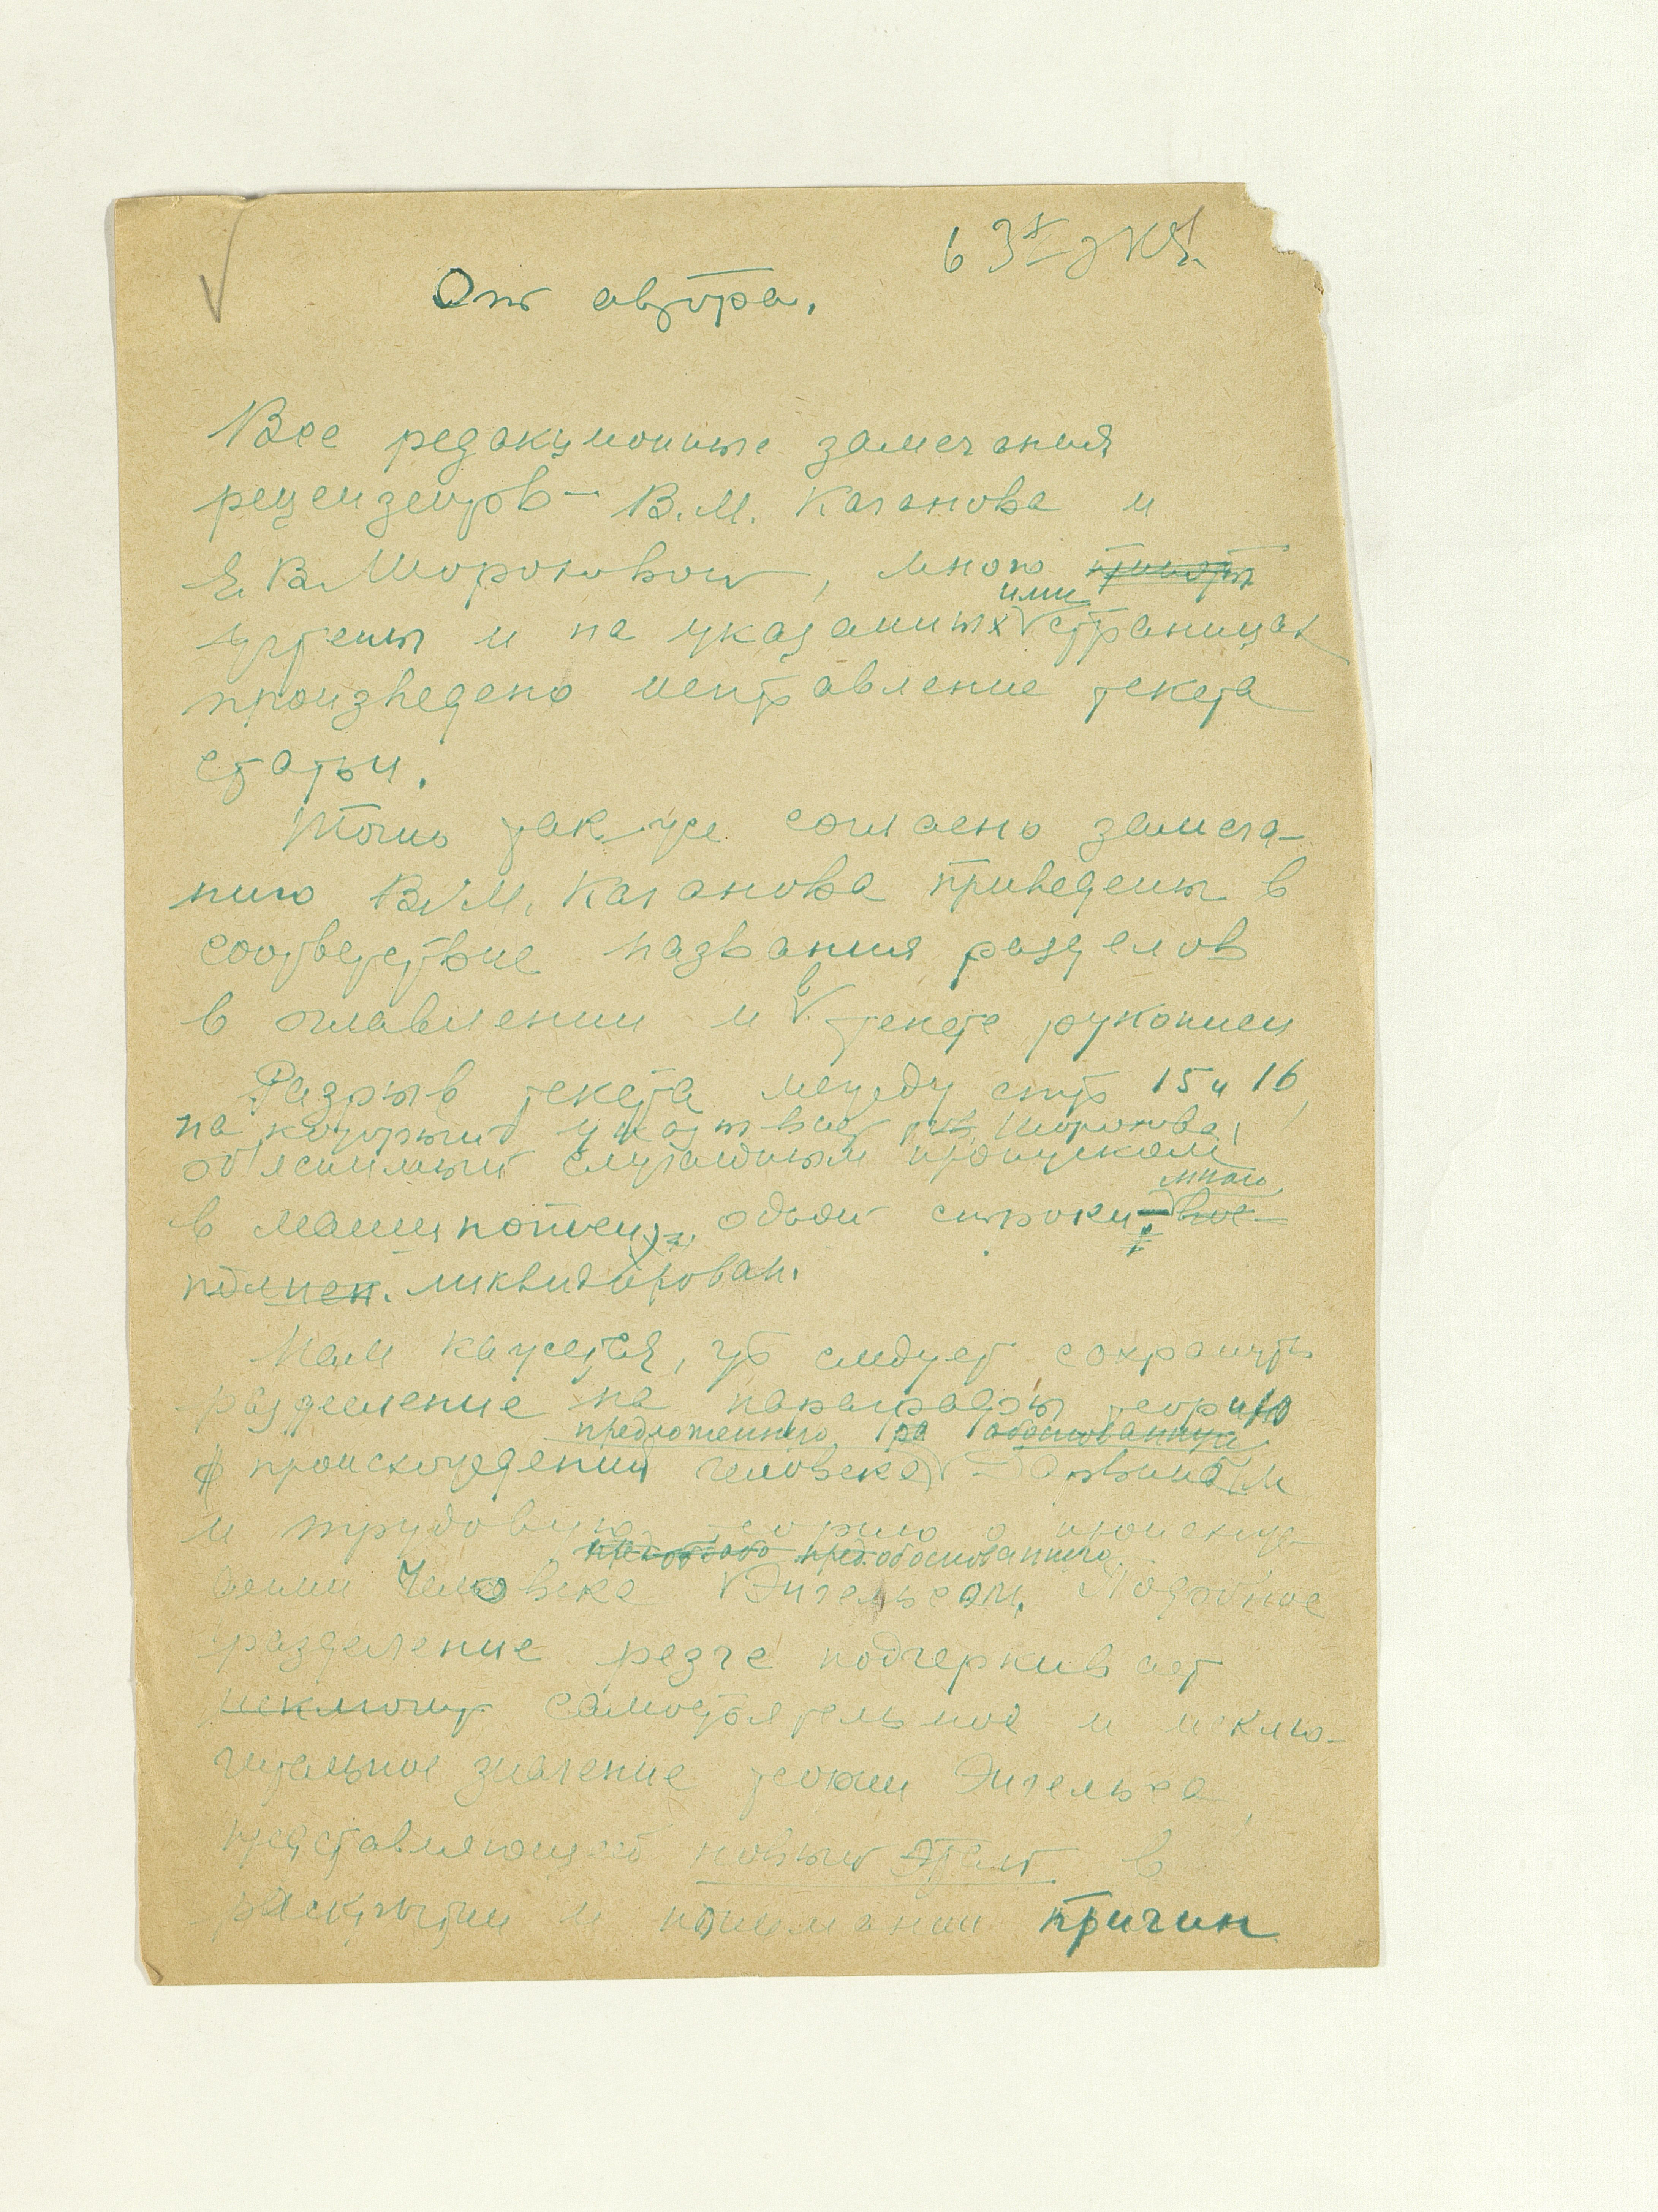 в 3х экз.
От автора.
Все редакционные замечания
рецензентов – В.М. Каганова и
Е.В. Шороховой, мною приняты
учтены и на указанных ими страницах
произведено исправление текста
статьи.
Точно так же согласно замеча-
нию В.М. Каганова приведены в
соответствие названия разделов
в оглавлении и в тексте рукописи
Разрыв текста между стр 15 и 16,
на который указывает тов. Шорохова,
объяснимый случайным пропуском
мною
в машинописи одной строки – вос-
полнен. ликвидирован.
Нам кажется, что следует сохранить
разделение на параграфы теорию
предложенную
происхождения человека Дарвином
и трудовую теорию о происхож-
обоснованную
дении человека Энгельсом. Подобное
разделение резче подчеркивает
исключит самостоятельное и исклю-
чительное значение теории Энгельса,
представляющей новый этап в
раскрытии и понимании причин